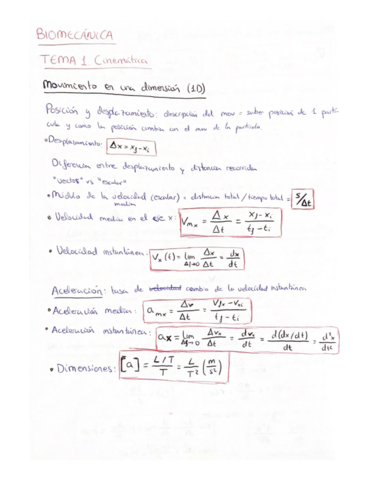 BIOMECÁNICA
TEMA 1 Cinemática
Movimiento en una dimensión (1D)
Posición y desplazamiento: descripción del mov = saber posición de 1 partí-
cula y como la posición cambia con el mov de la partícula
• Desplazamiento: Δx = xj - xi
Diferencia entre desplazamiento y distancia recorrida
"vector" vs "escalar"
• Módulo de la velocidad (escalar) = distancia total / tiempo total = s/Δt
media
• Velocidad media en el eje x: Vmx = Δx/Δt = (xj - xi)/(tj - ti)
• Velocidad instantánea: Vx(t) = lim Δt→0 Δx/Δt = dx/dt
Aceleración: tasa de velocidad cambio de la velocidad instantánea
• Aceleración media: amx = Δv/Δt = (Vjx - Vxi)/(tj - ti)
• Aceleración instantánea: ax = lim Δt→0 ΔVx/Δt = dvx/dt = d(dx/dt)/dt = d²x/dt²
• Dimensiones: [a] = (L/T)/T = L/T² (m/s²)